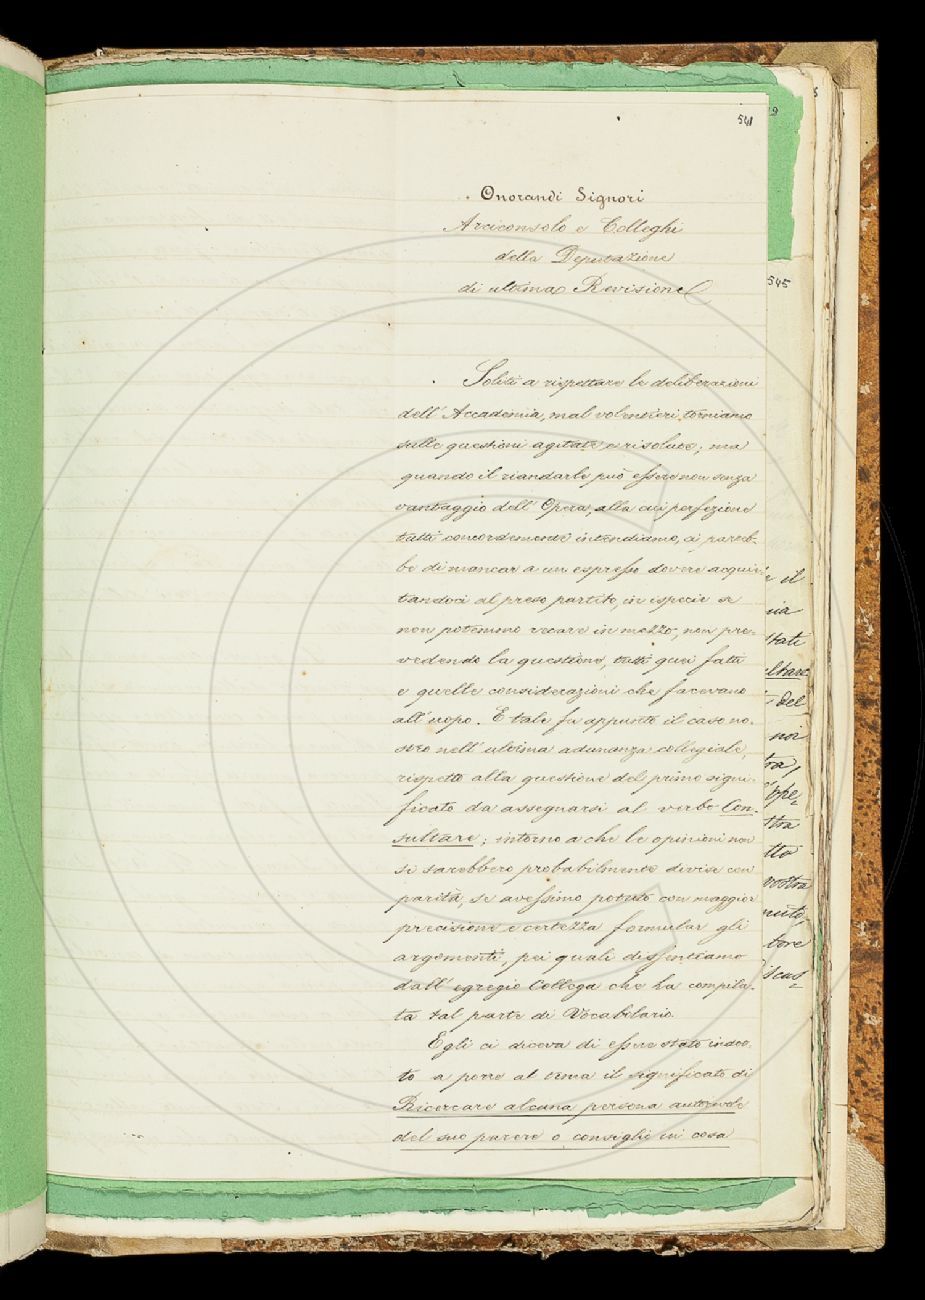 541
Onorandi Signori
Arciconsolo e Colleghi
della Deputazione
di ultima Revisione
Soliti a rispettare le deliberazioni
dell' Accademia, mal volentieri torniamo
sulle questioni agitate e risolute; ma
quando il riandarle può essere non senza
vantaggio dell' Opera, alla cui perfezione
tutti concordemente intendiamo, ci pareb-
be di mancar a un espresso dovere acquie-
tandoci al preso partito, in ispecie se
non potemmo recare in mezzo, non pre-
vedendo la questione, tutti quei fatti
e quelle considerazioni che facevano
all' uopo. E tale fu appunto il caso no-
stro nell' ultima adunanza collegiale,
rispetto alla questione del primo signi-
ficato da assegnarsi al verbo Con-
sultare; intorno a che le opinioni non
si sarebbero probabilmente divise con
parità, se avessimo potuto con maggior
precisione e certezza formular gli
argomenti, pei quali dissentiamo
dall' egregio Collega che ha compila-
ta tal parte di Vocabolario.
Egli ci diceva di essere stato indot-
to a porre al tema il significato di
Ricercare alcuna persona autorevole
del suo parere o consiglio in cosa
545
il
ia
stati
ultare
del
noi
tra,
ope-
stra
tto
vostra
nuto,
tore
scus-